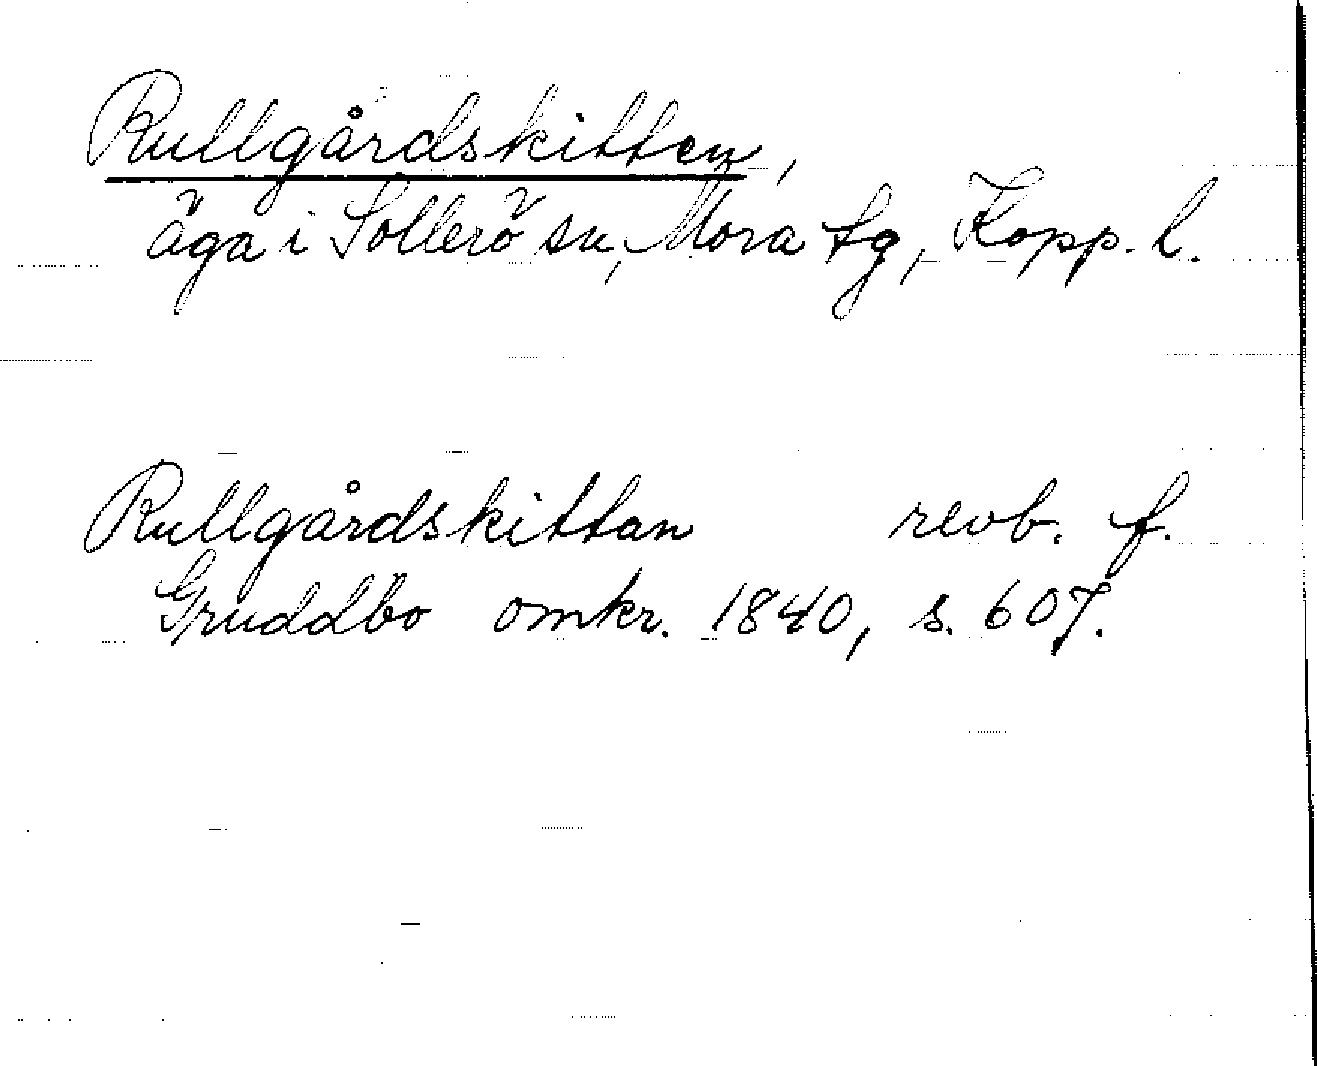 Rullgårdskitten,
äga i Sollerö sn, Mora tg, Kopp. l.
Rullgårdskittan revb. f.
Gruddbo omkr. 1840, s. 607.